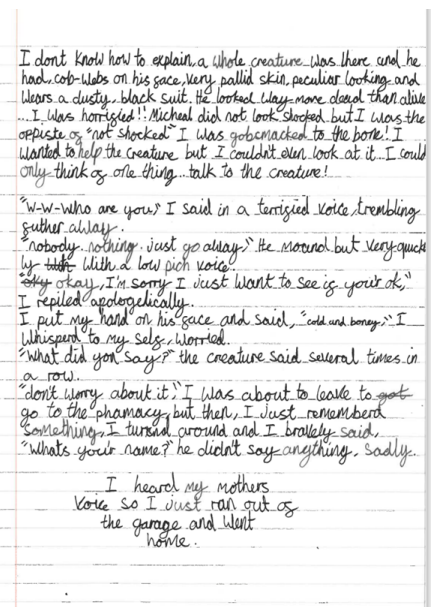 I dont know how to explain, a whole creature was there and he
had, cob-webs on his face, very pallid skin, peculiar looking and
wears a dusty, black suit. He looked way more dead than alive
...I was horrified!! Micheal did not look shocked but I was the
oppiste of "not shocked" I was gobsmacked to the bone! I
wanted to help the creature but I couldn't even look at it... I could
only think of one thing... talk to the creature!
"W-W-Who are you," I said in a terrified voice, trembling
futher away.
"nobody. nothing. just go away," He moand but very quick
ly with a low pich voice.
okay, I'm sorry I just want to see if your ok,"
I repiled apologedically.
I put my hand on his face and said, "cold and boney," I
whisperd to my self, worried.
"what did you say?" the creature said several times in
a row.
"don't worry about it," I was about to leave to got
go to the phamacy, but then, I just rememberd
something, I turnd around and I bravely said,
"whats your name?" he didn't say anything, sadly.
I heard my mothers
voice so I just ran out of
the garage and went
home.